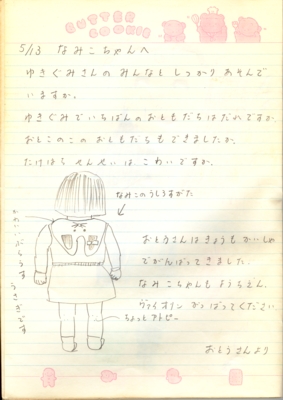 BUTTER COOKIE
5/13 なみこちゃんへ
ゆきぐみさんのみんなとしっかりあそんで
いますか。
ゆきぐみでいちばんのおともだちはだれですか
おとこのこのおともだちもできましたか。
たけはらせんせいはこわいですか。
なみこのうしろすがた
かわいいぶらうす
うさぎです
おとうさんはきょうもかいしゃ
でがんばってきました。
なみこちゃんもようちえん、
ヴァイオリンがんばってください
ちょっとアトピー
おとうさんより